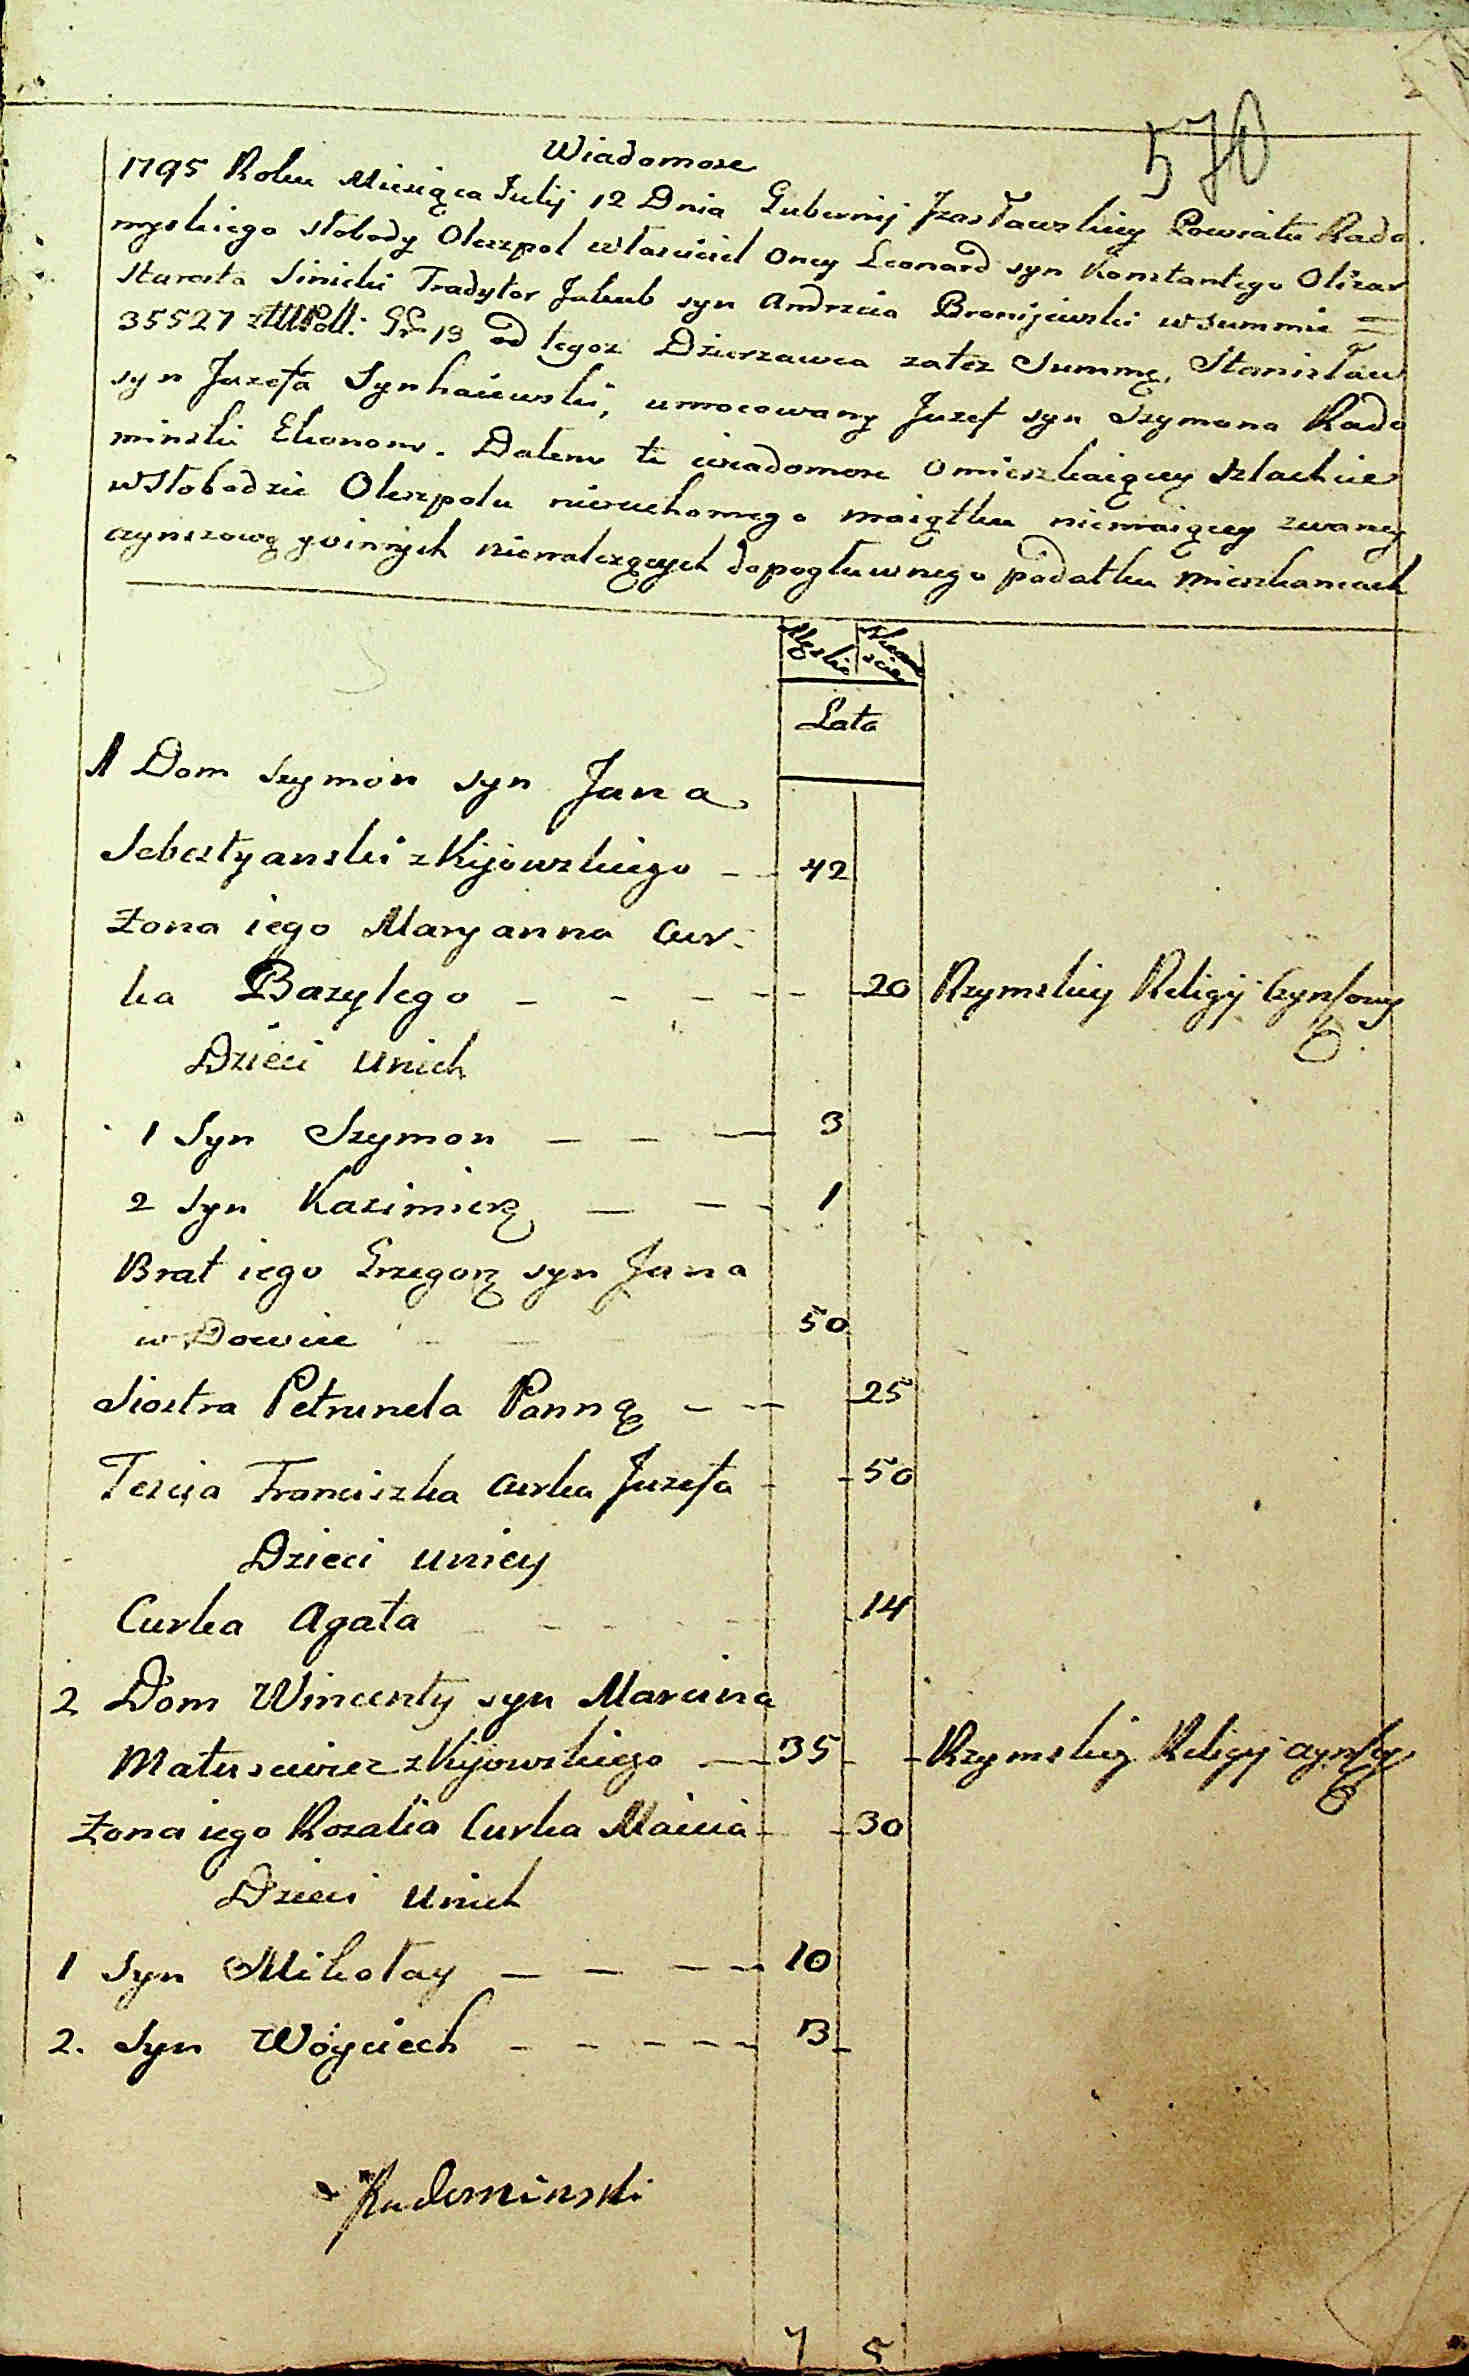 570
Wiadomosc
1795 Roku Miesiąca Julij 12 Dnia Gubernij Jzasławskiey Powiatu Rado
myskiego słobody Olszpol własciciel oney Leonard syn Konstantego Olizar
starosta Sinicki Tradytor Jakub syn Andrzeia Bronijewski w summie =
35527 Poll: Gr 13 od tegoz Dzierzawca zatez Summę, Stanisław
syn Juzefa Synhaiewski, umocowany Juzef syn Szymona Rado
minski Ekonom. Dalem te wiadomosc o mieszkaiącey szlachcie
w Słobodzie Olszpolu nieruchomego maiątku niemaiącey zwaney
czynszową y innych nienalezących do pogłuwnego podatku mieszkancach
Męskie Zenskie
Lata
1 Dom Szymon syn Jana
Sebestyanski z Kijowskiego - - 42
Zona iego Maryanna Cur-
ka Bazylego - - - - - 20 Rzymskiey Religij Czynszowy
Dzieci u nich
1 Syn Szymon - - - 3
2 Syn Kazimierz - - - 1
Brat iego Grzegorz syn Jana
w Dowiec - - - 50
Siostra Petrunela Panna - - - 25
Tescia Franciszka Curka Juzefa - - 50
Dzieci u niey
Curka Agata - - - - 14
2 Dom Wincenty syn Marcina
Matusewicz z Kijowskiego - 35 - - Rzymskiey Religij czynszowy
Zona iego Rozalia Curka Macieia - - 30
Dzieci u nich
1 Syn Mikołay - - - - 10
2. Syn Woyciech - - - - - 3 -
Radominski
7 5